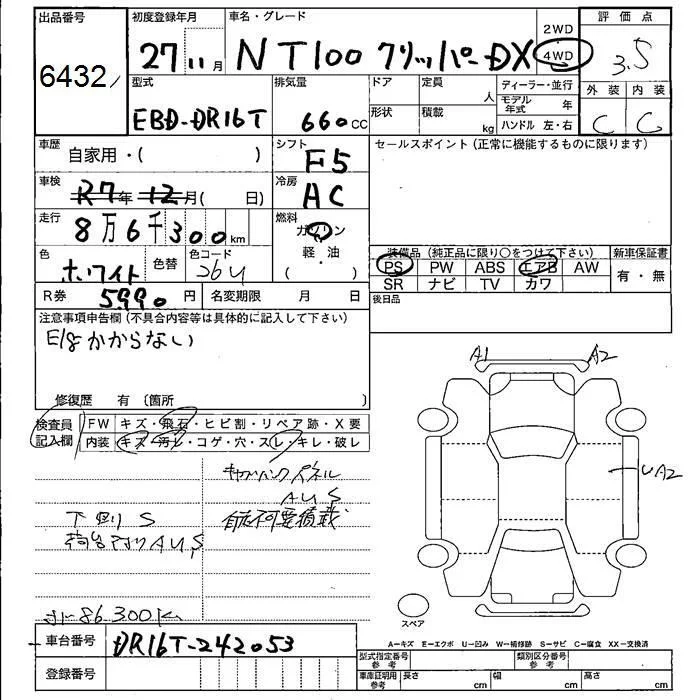 出品番号 初度登録年月 車名・グレード 2WD 評価点
6432 27 11月 NT100 クリッパーDX 4WD 3.5
型式 排気量 ドア 定員 ディーラー・並行 外装 内装
EBD-DR16T 660cc 人 モデル年式 年 C C
形状 積載 kg ハンドル 左・右
車歴 シフト セールスポイント(正常に機能するものに限ります)
自家用・( ) F5
車検 冷房
R7年 12月( 日) AC
走行 燃料
8万6千300km ガソリン
色 色替 色コード 軽・油
ホワイト 26U ( )
装備品(純正品に限り○をつけて下さい) 新車保証書
PS PW ABS エアB AW 有・無
SR ナビ TV カワ
R券 5990円 名変期限 月 日 後日品
注意事項申告欄(不具合内容等は具体的に記入して下さい)
E/gかからない
修復歴 有 〔箇所 〕
A1 A2
検査員記入欄 FW キズ・飛石・ヒビ割・リペア跡・X要
内装 キズ・汚レ・コゲ・穴・スレ・キレ・破レ
キャブバックパネル
AUS
UA2
下回りS 自走不可要積載
荷台アオリAUS
メーター86,300km
スペア
A=キズ E=エクボ U=凹み W=補修跡 S=サビ C=腐食 XX=交換済
車台番号 DR16T-242053
型式指定番号 参考 類別区分番号 参考
登録番号
車庫証明用 参考 長さ cm 幅 cm 高さ cm